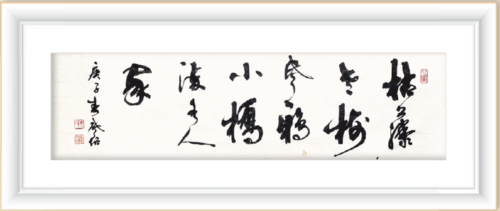 枯藤
老樹
昏鴉
小橋
流水人
家
庚子春